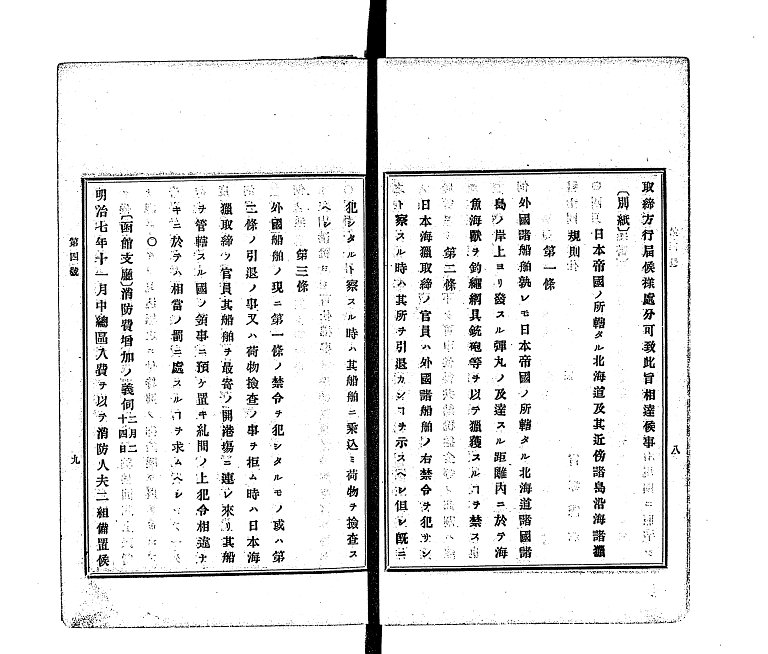 取締方行屆候樣處分可致此旨相達候事
〔別紙〕
日本帝國ノ所轄タル北海道及其近傍諸島沿海諸獵
規則
第一條
外國諸船舶孰レモ日本帝國ノ所轄タル北海道諸國諸
島ノ岸上ヨリ發スル彈丸ノ及達スル距離内ニ於テ海
魚海獸ヲ釣繩網具銃砲等ヲ以テ獵獲スルヿヲ禁ス
第二條
日本海獵取締ノ官員ハ外國諸船舶ノ右禁令ヲ犯サン
ト察スル時ハ其所ヲ引退カンヿヲ示スヘシ但シ既ニ
八
犯シタルト察スル時ハ其船舶ニ乘込ミ荷物ヲ檢查ス
ヘシ
第三條
外國船舶ノ現ニ第一條ノ禁令ヲ犯シタルモノ或ハ第
二條ノ引退ノ事又ハ荷物檢查ノ事ヲ拒ム時ハ日本海
獵取締ノ官員其船舶ヲ最寄ノ開港場ニ連レ來リ其船
ヲ管轄スル國ノ領事ニ預ケ置キ糺問ノ上犯令相違ナ
キニ於テハ相當ノ罰ニ處スルヿヲ求ムヘシ
○
〔函館支廳〕消防費增加ノ義伺 二月二十四日
明治七年十一月中總區入費ヲ以テ消防人夫二組備置候
第四號
九